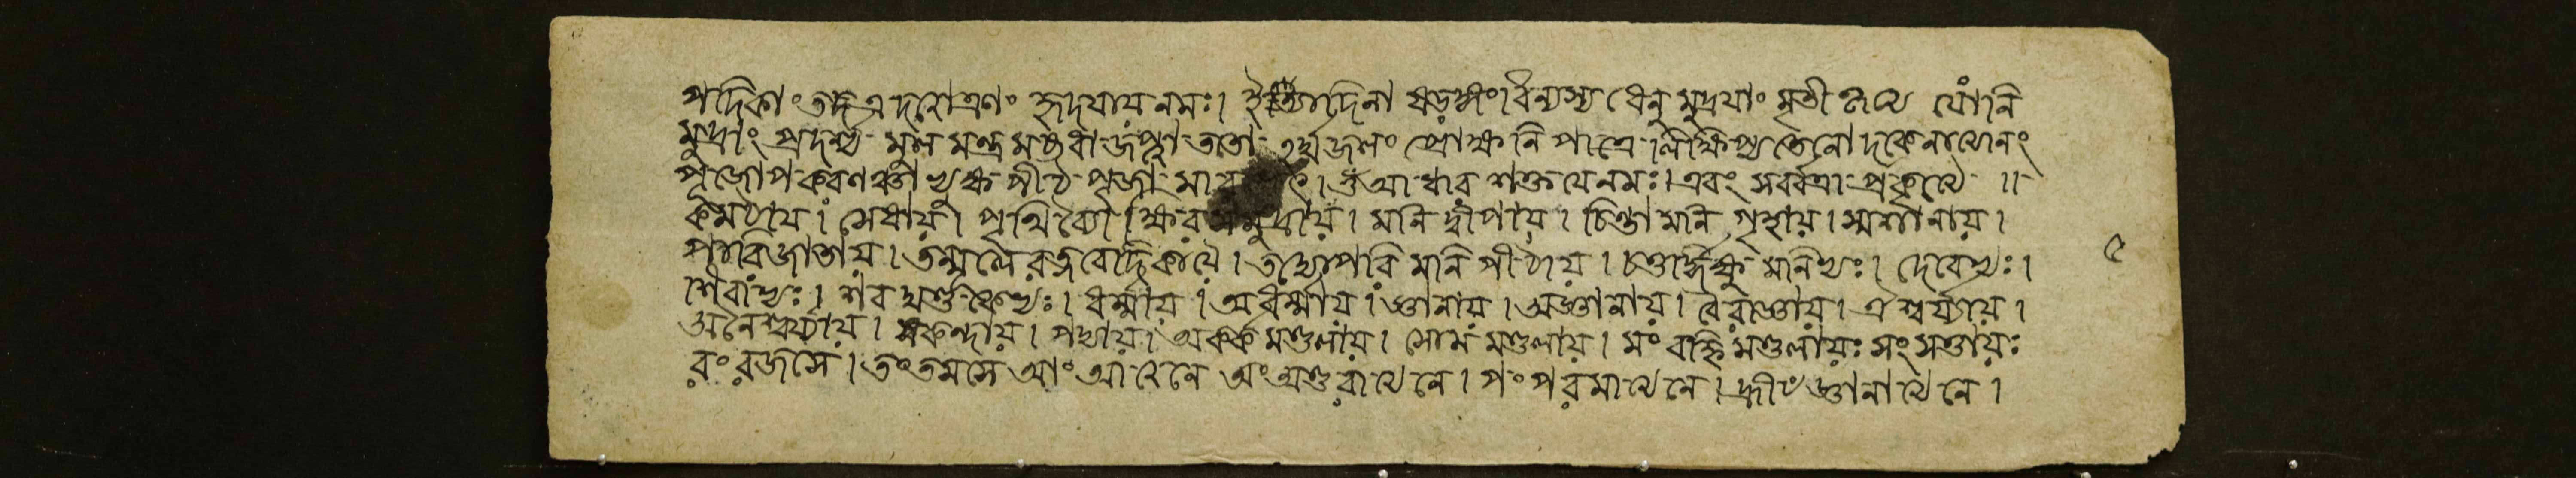 পদিকাং তদএদলোত্রণং হৃদয়ায় নমঃ। ইত্যাদিনা ষড়ঙ্গং। বিন্যস্য ধেনু মুদ্রয়াং মৃতী যোঁনি
মুদ্রাং প্রদর্শ্য মুল মন্ত্র মষ্টধা জপ্ত্বা ততো ঽর্ঘ্যজলং প্রোক্ষনি পাত্রে নিক্ষিপ্য তেনোদকেনাত্মেনং
পূজোপকরণঞ্চাভ্যুক্ষ পীঠ পূজা মার । ওঁ আধার শক্তয়েনমঃ। এবং সর্ব্বত্রা প্রকৃত্যৈ ॥
কমঠায়। সেষায়। পৃথিব্যৈ ক্ষির সমুদ্রায়। মনি দ্বীপায়। চিন্তামনি গৃহায়। স্মশানায়।
পারিজাতায়। তন্মূলে রত্নবেদিকায়ৈ। তস্যোপরি মানি পীঠায়। চতুর্দ্দিক্ষু মানিভ্যঃ। দেবেভ্যঃ। ৫
শিবাভ্যঃ। শব মুণ্ডেভ্যঃ। ধর্ম্মায়। অধর্ম্মায়। জ্ঞানায়। অজ্ঞানায়। বৈরাজ্ঞায়। ঐশ্বর্য্যায়।
অনৈশ্বর্য্যায়। স্কন্দায়। পদ্মায়। অকর্ক মণ্ডলায়। সোমঁ মণ্ডলায়। মং বহ্নি মণ্ডলায়ঃ সং সত্তায়ঃ
রং রজসে। তং তমসে আং আত্মেনে অং অন্তরাত্মেনে। পং পরমাত্মেনে। হ্রীঁ জ্ঞানাত্মেনে।